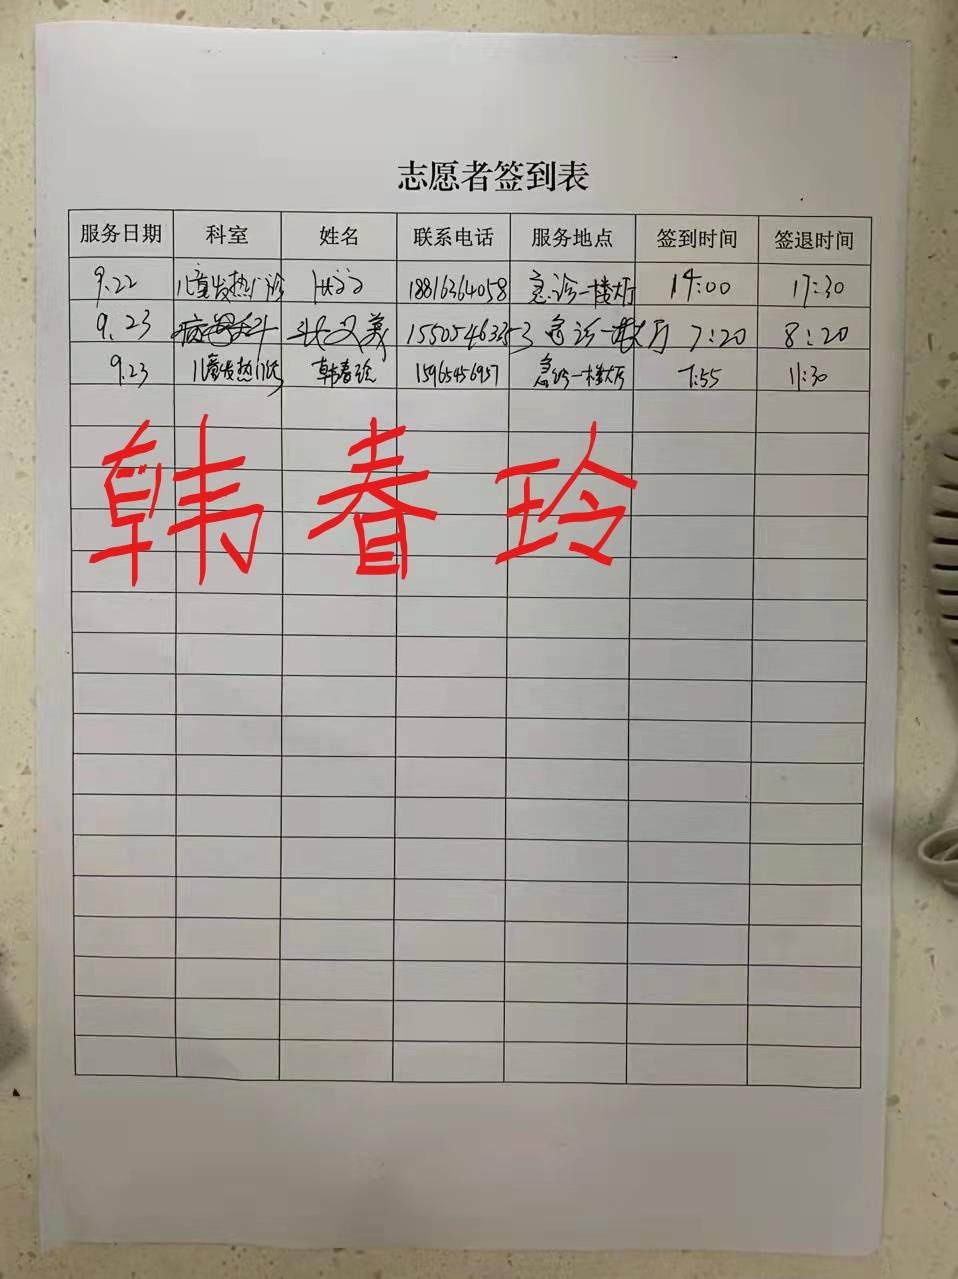 志愿者签到表
服务日期 科室 姓名 联系电话 服务地点 签到时间 签退时间
9.22 儿童发热门诊 18816364058 急诊一楼大厅 14:00 17:30
9.23 急诊一楼大厅 7:20 8:20
9.23 儿童发热门诊 韩春玲 15965456957 急诊一楼大厅 7:55 11:30
韩春玲